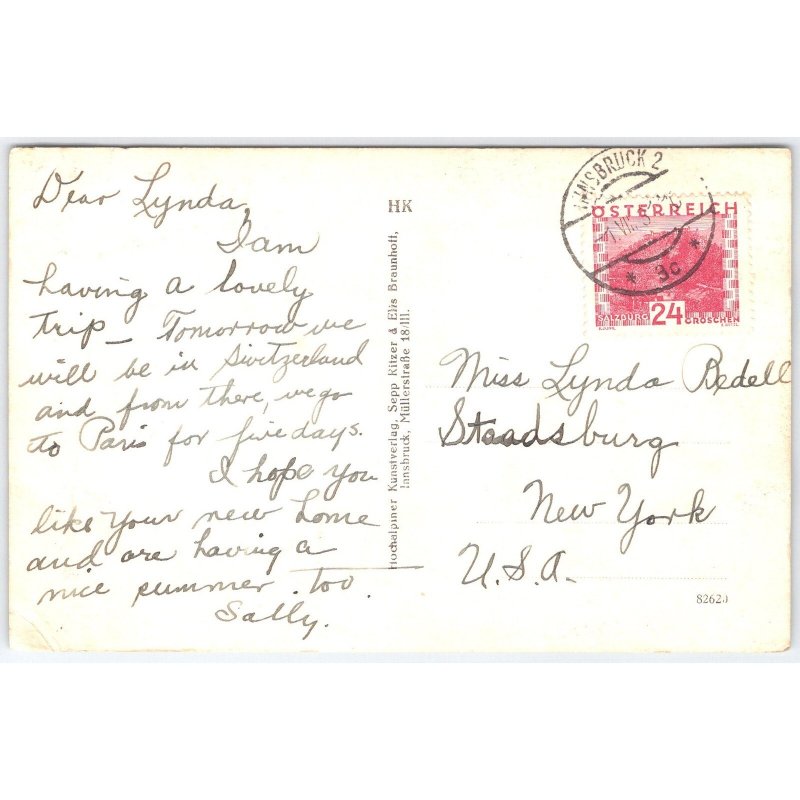 Dear Lynda,
I am
having a lovely
trip - Tomorrow we
will be in Switzerland
and from there, we go
to Paris for five days.
I hope you
like your new home
and are having a
nice summer too.
Sally.
HK
Hochalpiner Kunstverlag, Sepp Ritzer & Elis Braunhoff,
Innsbruck, Müllerstraße 18/III.
INNSBRUCK 2
* 9c *
ÖSTERREICH
SALZBURG 24 GROSCHEN
Miss Lynda Bedell
Staadsburg
New York
U.S.A-
8262